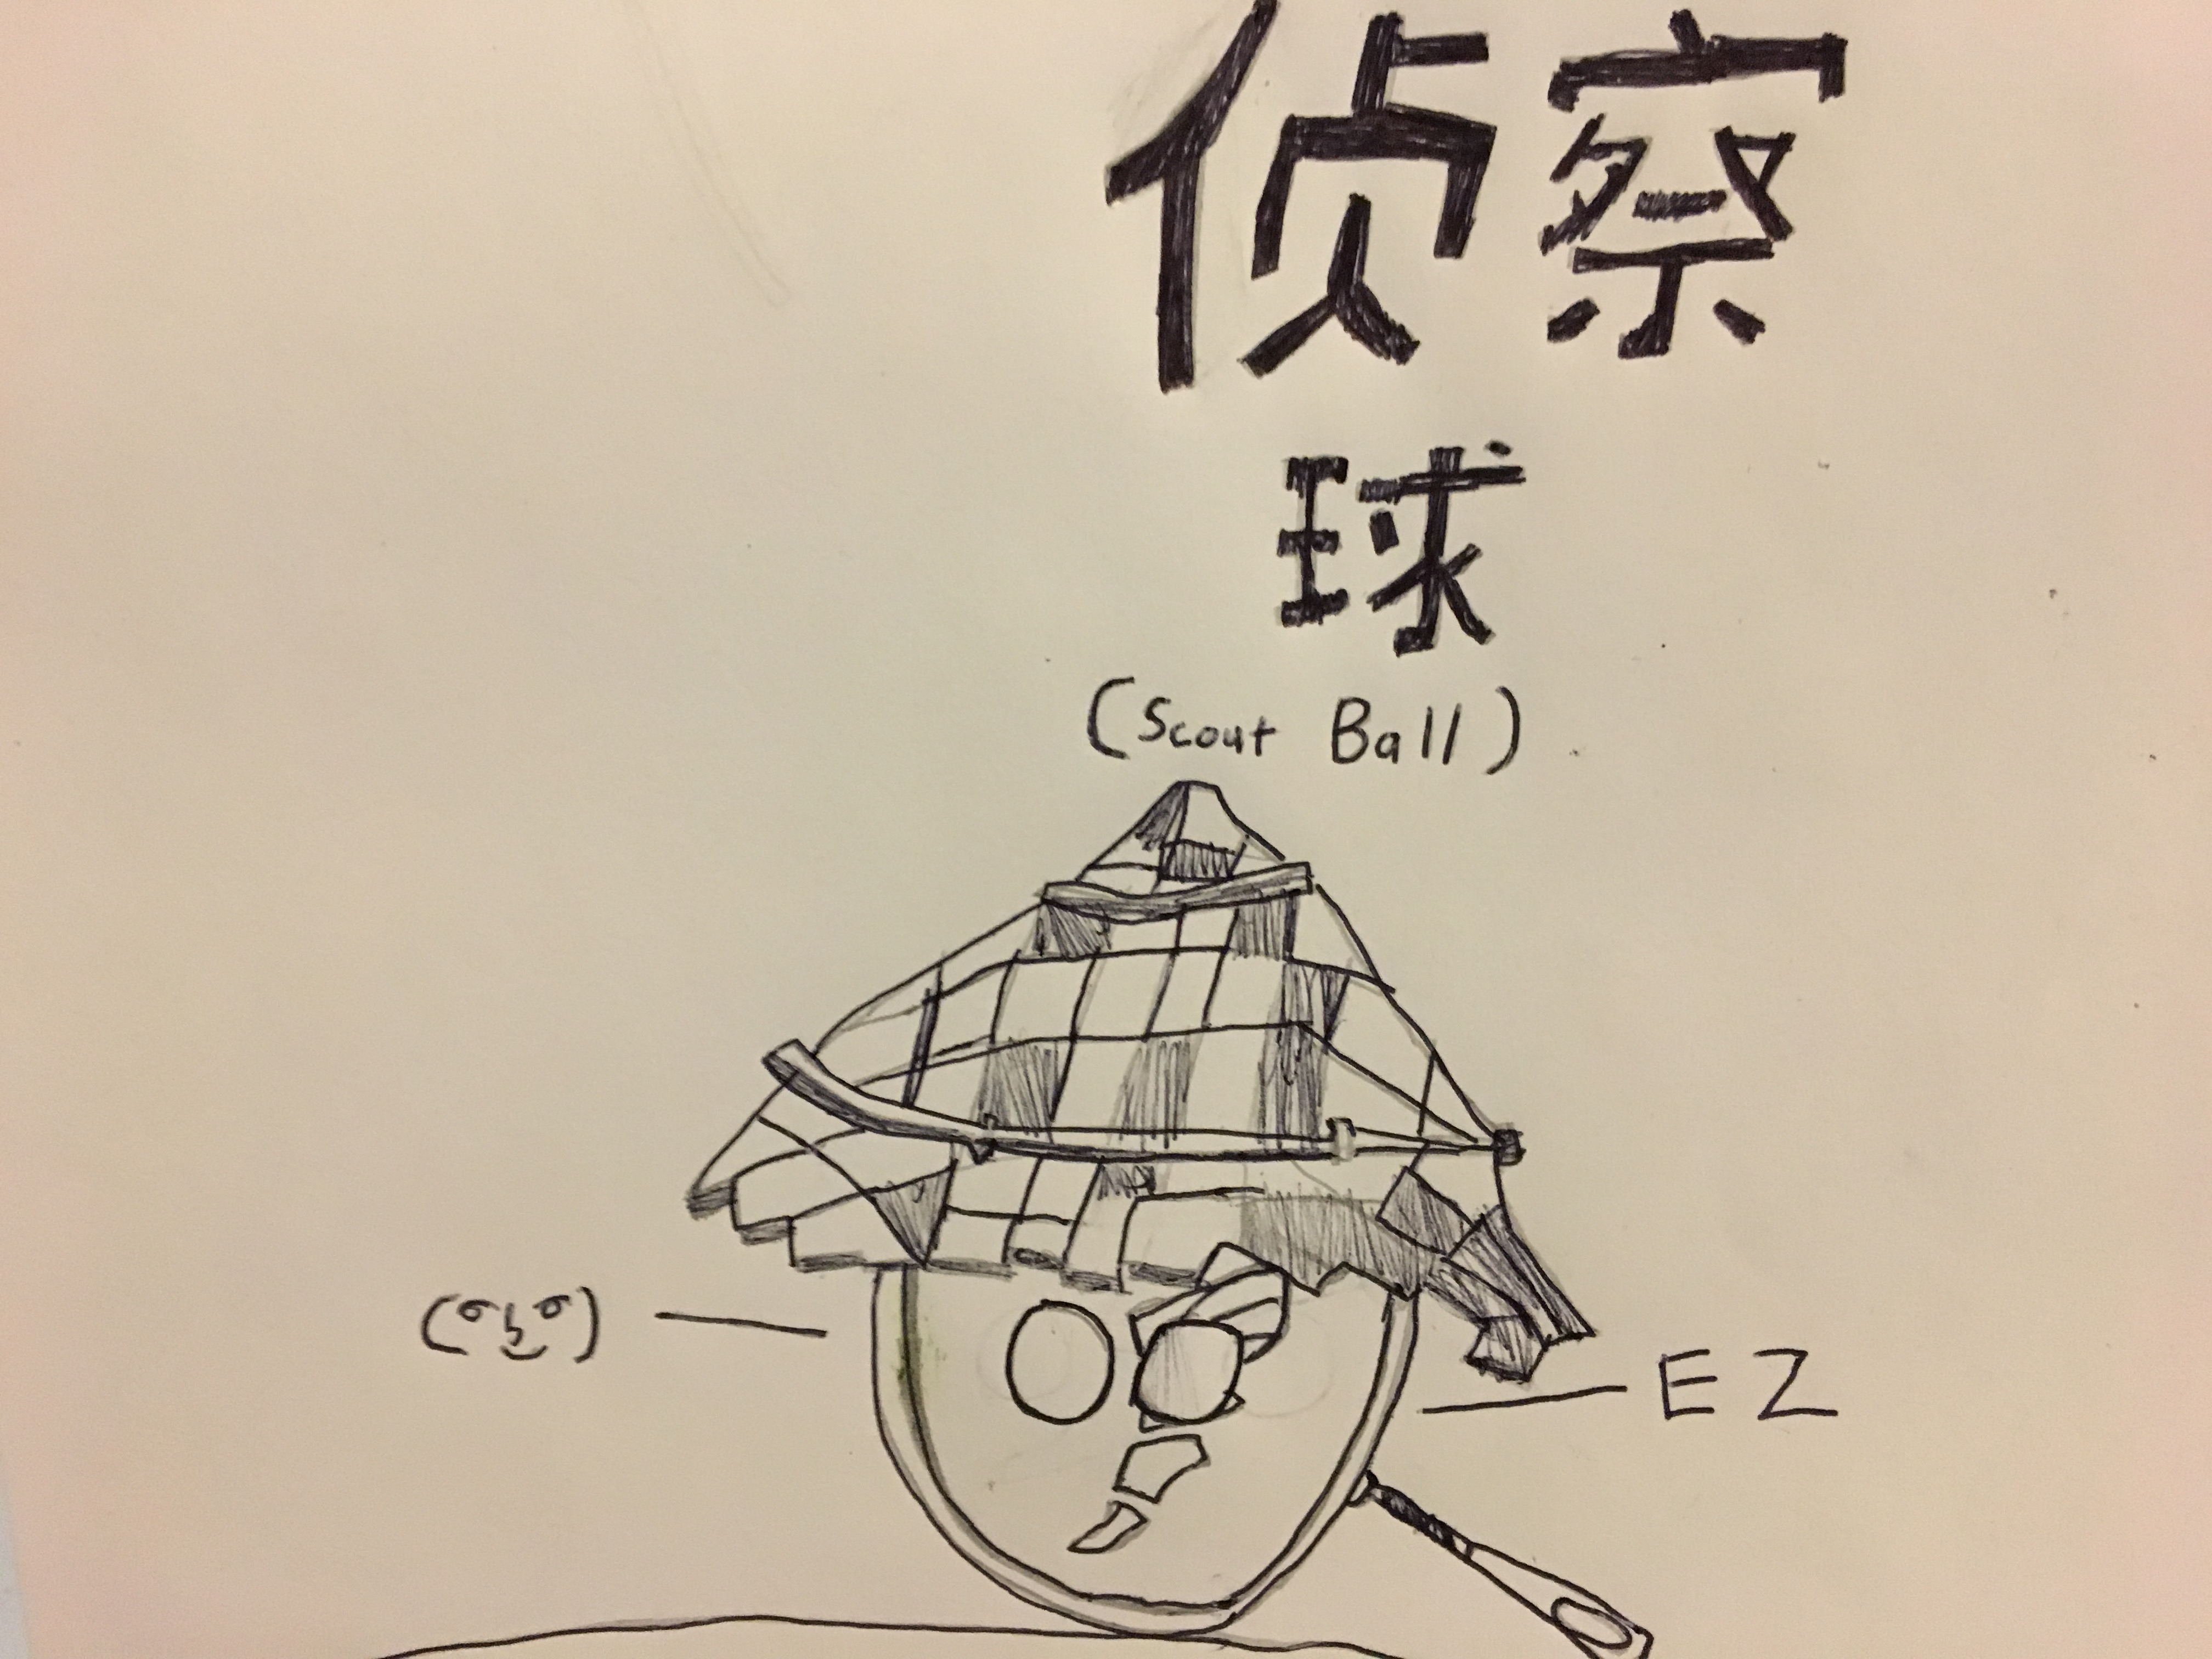 侦察
球
(Scout Ball)
( ͡° ͜ʖ ͡°)
EZ